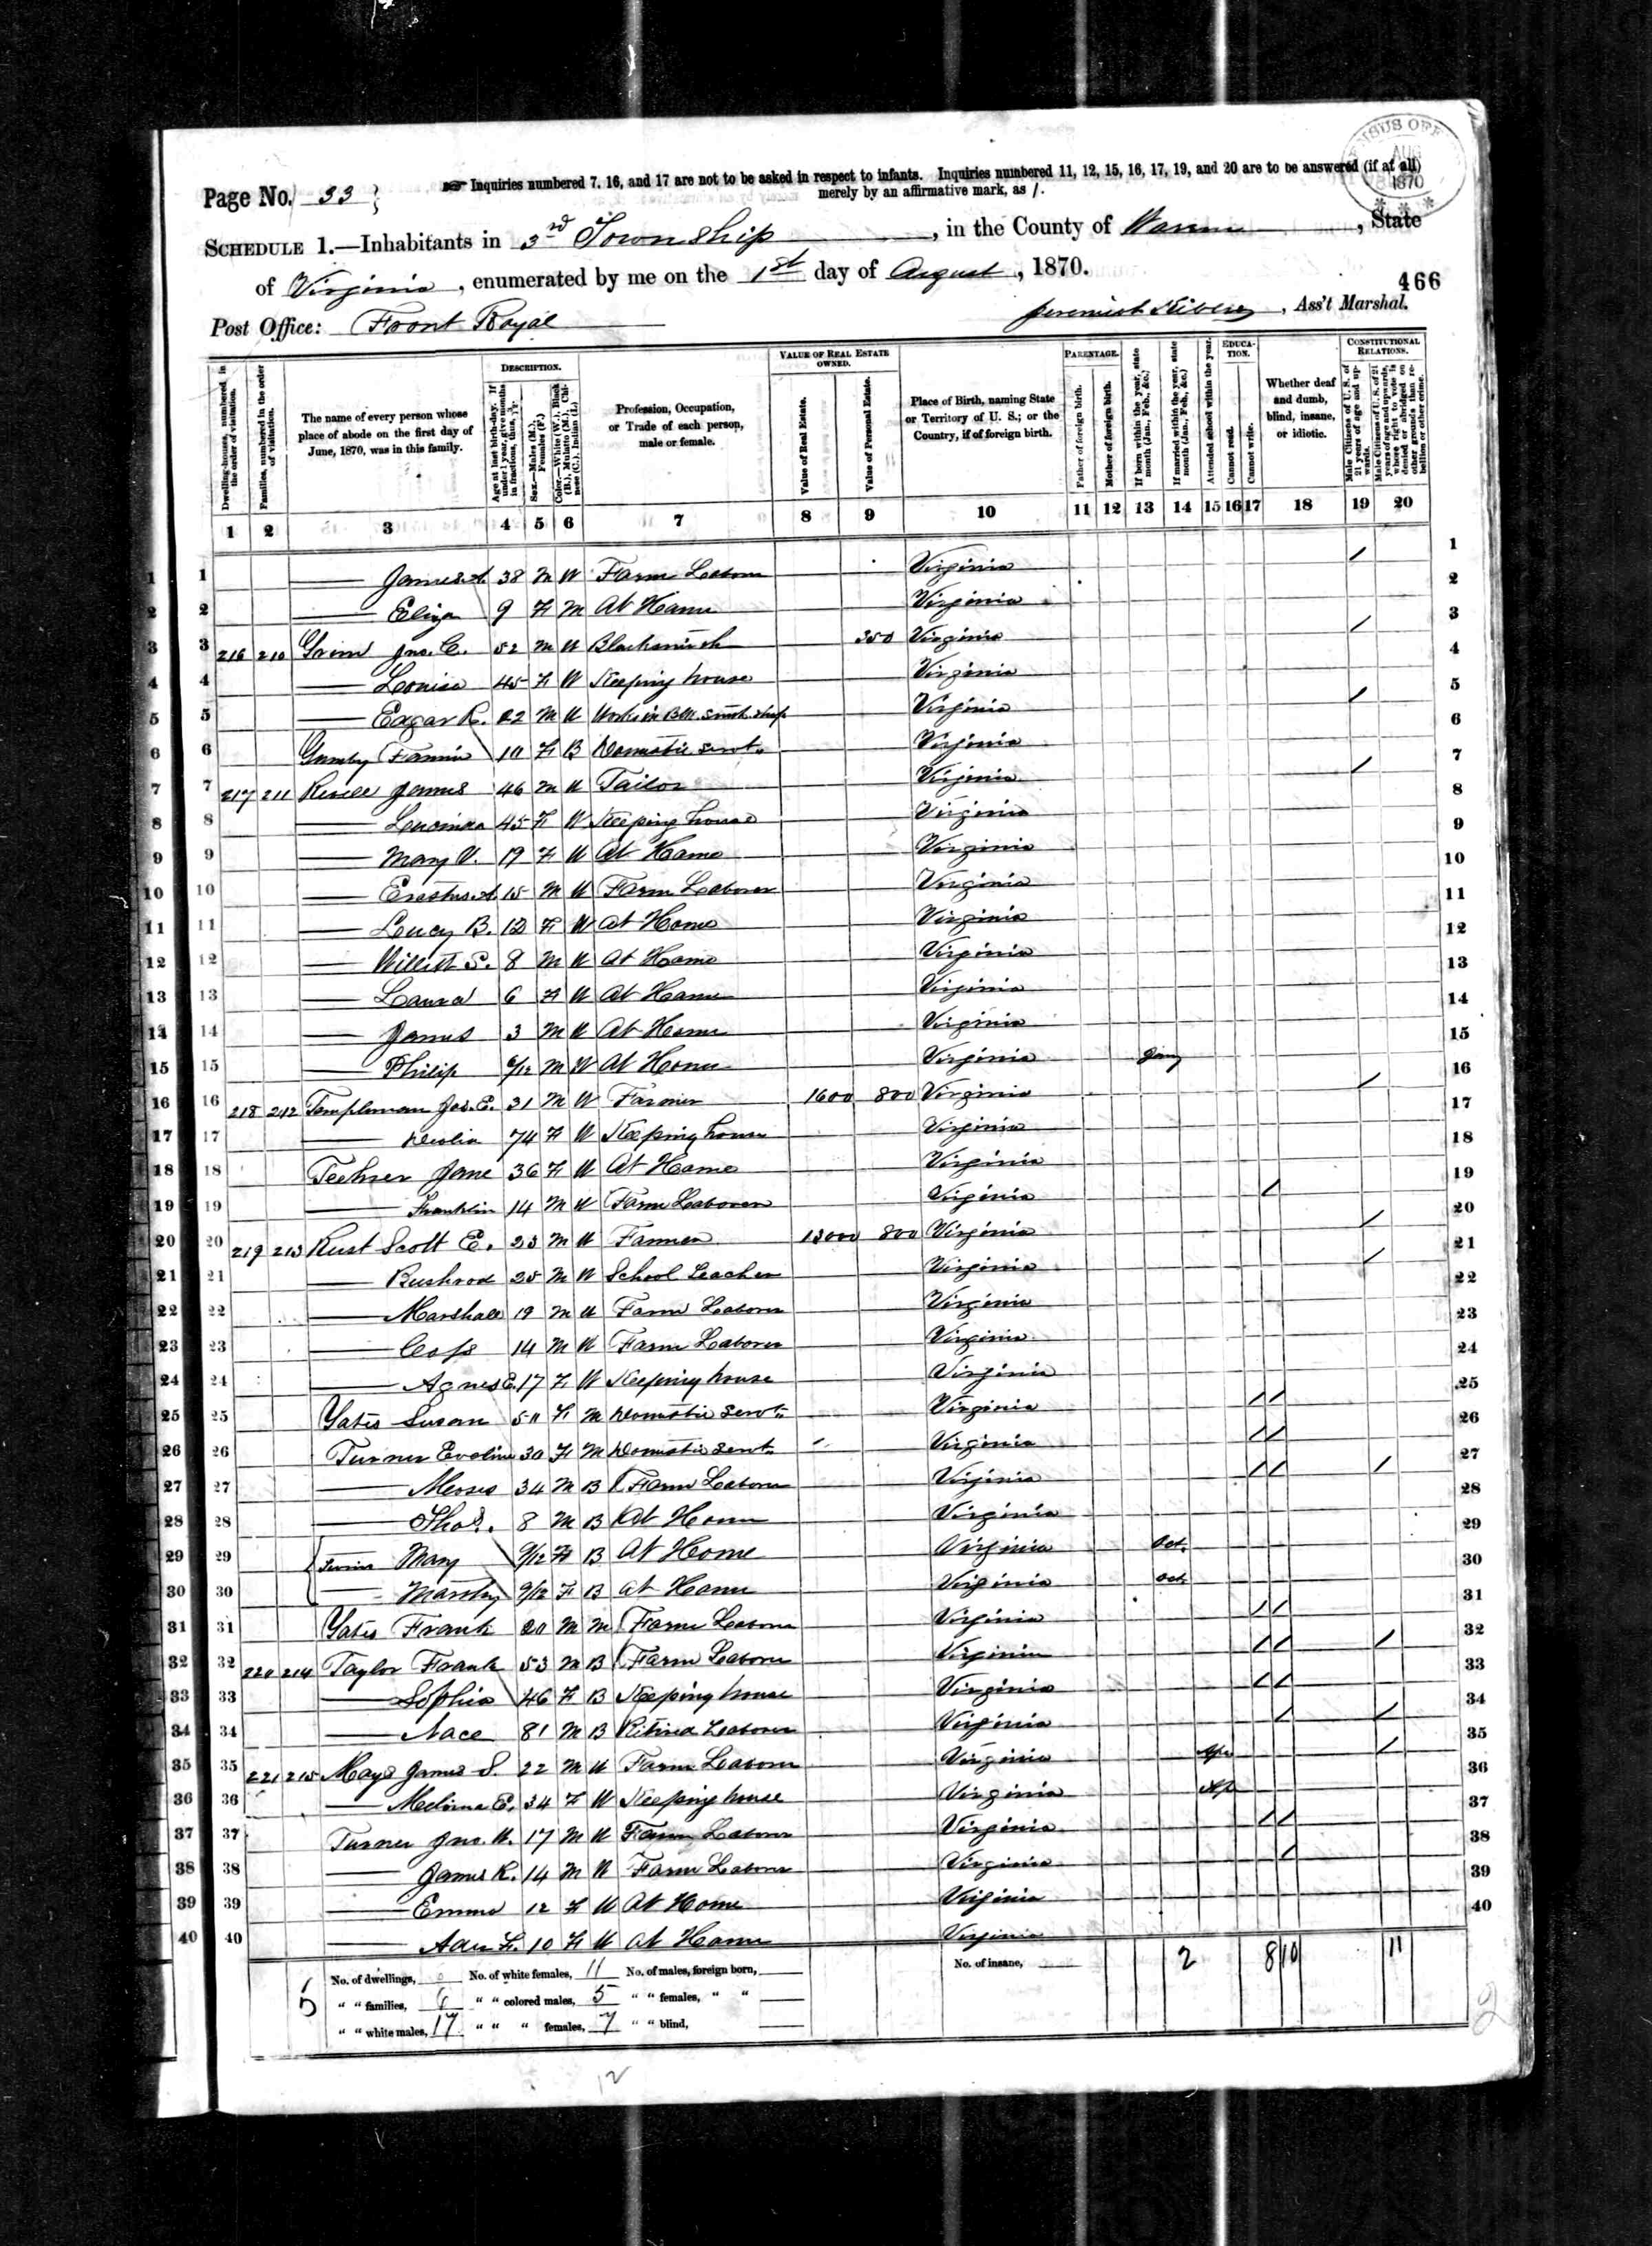 CENSUS OFF
AUG
1870
Page No. 33
Inquiries numbered 7, 16, and 17 are not to be asked in respect to infants. Inquiries numbered 11, 12, 15, 16, 17, 19, and 20 are to be answered (if at all)
merely by an affirmative mark, as /.
SCHEDULE 1.—Inhabitants in 3rd Township, in the County of Warren, State
of Virginia, enumerated by me on the 1st day of August, 1870.
466
Post Office: Front Royal
Jeremiah, Ass't Marshal.
Dwelling-houses, numbered in the order of visitation.
Families, numbered in the order of visitation.
The name of every person whose place of abode on the first day of June, 1870, was in this family.
DESCRIPTION.
Age at last birth-day. If under 1 year, give months in fractions, thus, 3/12.
Sex.—Males (M.), Females (F.)
Color.—White (W.), Black (B.), Mulatto (M.), Chinese (C.), Indian (I.)
Profession, Occupation, or Trade of each person, male or female.
VALUE OF REAL ESTATE OWNED.
Value of Real Estate.
Value of Personal Estate.
Place of Birth, naming State or Territory of U. S.; or the Country, if of foreign birth.
PARENTAGE.
Father of foreign birth.
Mother of foreign birth.
If born within the year, state month (Jan., Feb., &c.)
If married within the year, state month (Jan., Feb., &c.)
Attended school within the year.
EDUCATION.
Cannot read.
Cannot write.
Whether deaf and dumb, blind, insane, or idiotic.
CONSTITUTIONAL RELATIONS.
Male Citizens of U. S. of 21 years of age and upwards.
Male Citizens of U. S. of 21 years of age and upwards, where right to vote is denied or abridged on other grounds than rebellion or other crime.
1 2 3 4 5 6 7 8 9 10 11 12 13 14 15 16 17 18 19 20
1 — James A. 38 M W Farm Labour Virginia /
2 — Eliza 9 F M At Home Virginia
3 216 210 Grim Jno. C. 52 M W Blacksmith 350 Virginia /
4 — Louisa 45 F W Keeping house Virginia
5 — Edgar R. 22 M W Works in Blk. Smith Shop Virginia /
6 Fannie 10 F B Domestic Servt. Virginia
7 217 211 James 46 M W Tailor Virginia /
8 — Lucinda 45 F W Keeping house Virginia
9 — Mary V. 19 F W At Home Virginia
10 — Erastus A. 15 M W Farm Laborer Virginia
11 — Lucy B. 12 F W At Home Virginia
12 — Willett S. 8 M W At Home Virginia
13 — Laura 6 F W At Home Virginia
14 — James 3 M W At Home Virginia
15 — Philip 6/12 M W At Home Virginia Jany
16 218 212 Templeman Jas. E. 31 M W Farmer 1600 800 Virginia /
17 — 74 F W Keeping house Virginia
18 Jane 36 F W At Home Virginia
19 — Franklin 14 M W Farm Laborer Virginia /
20 219 213 Rust Scott E. 23 M W Farmer 13000 800 Virginia /
21 — Bushrod 25 M W School Teacher Virginia /
22 — Marshall 19 M W Farm Laborer Virginia
23 — 14 M W Farm Laborer Virginia
24 — Agnes E. 17 F W Keeping house Virginia
25 Yates Susan 50 F M Domestic Servt. Virginia / /
26 Turner Eveline 30 F M Domestic Servt. Virginia / /
27 — Moses 34 M B Farm Laborer Virginia / / /
28 — Thos. 8 M B At Home Virginia
29 Twins Mary 9/12 F B At Home Virginia Oct.
30 — Martha 9/12 F B At Home Virginia Oct.
31 Yates Frank 20 M M Farm Laborer Virginia / /
32 220 214 Taylor Frank 53 M B Farm Laborer Virginia / / /
33 — Sophia 46 F B Keeping house Virginia / /
34 — Nace 81 M B Retired Laborer Virginia / /
35 221 215 Mays James S. 22 M W Farm Laborer Virginia Apr /
36 — E. 34 F W Keeping house Virginia Ap
37 Turner Jno. W. 17 M W Farm Laborer Virginia / /
38 — James R. 14 M W Farm Laborer Virginia /
39 — Emma 12 F W At Home Virginia
40 — Ada F. 10 F W At Home Virginia
No. of dwellings, No. of white females, 11 No. of males, foreign born, No. of insane, 2 8 10 11
6
5
" " families, 6 " " colored males, 5 " " females, " "
" " white males, 17 " " " females, 7 " " blind,
12
2